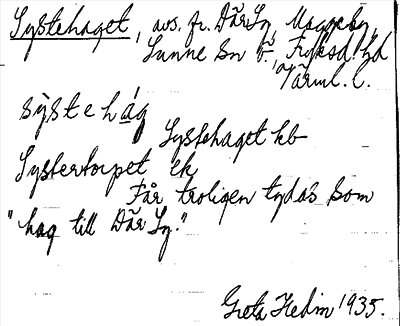 Systehaget, avs. fr. Där Sy, Maggeby,
Sunne sn o., Fryksd. hd
Värml. l.
sỳstehág
Systehaget kb
Systertorpet ek
Får troligen tydas som
"hag till Där Sy."
Greta Hedin 1935.